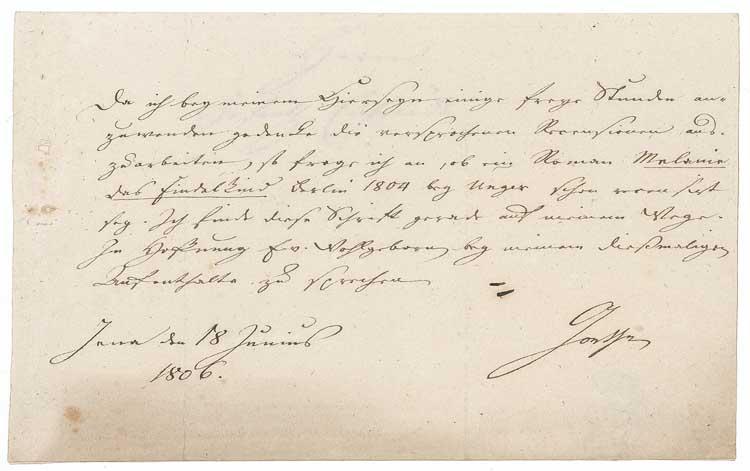 Da ich bey meinem Hierseyn einige freye Stunden an-
zuwenden gedencke die versprochenen Recensionen aus-
zuarbeiten, so frage ich an, ob ein Roman Melanie
das Findelkind Berlin 1804 bey Unger schon recensirt
sey. Ich finde diese Schrift gerade auf meinem Wege.
In Hoffnung Ew. Wohlgeborn bey meinem diesmaligen
Aufenthalte zu sprechen
Jena den 18 Junius
1806.
Goethe